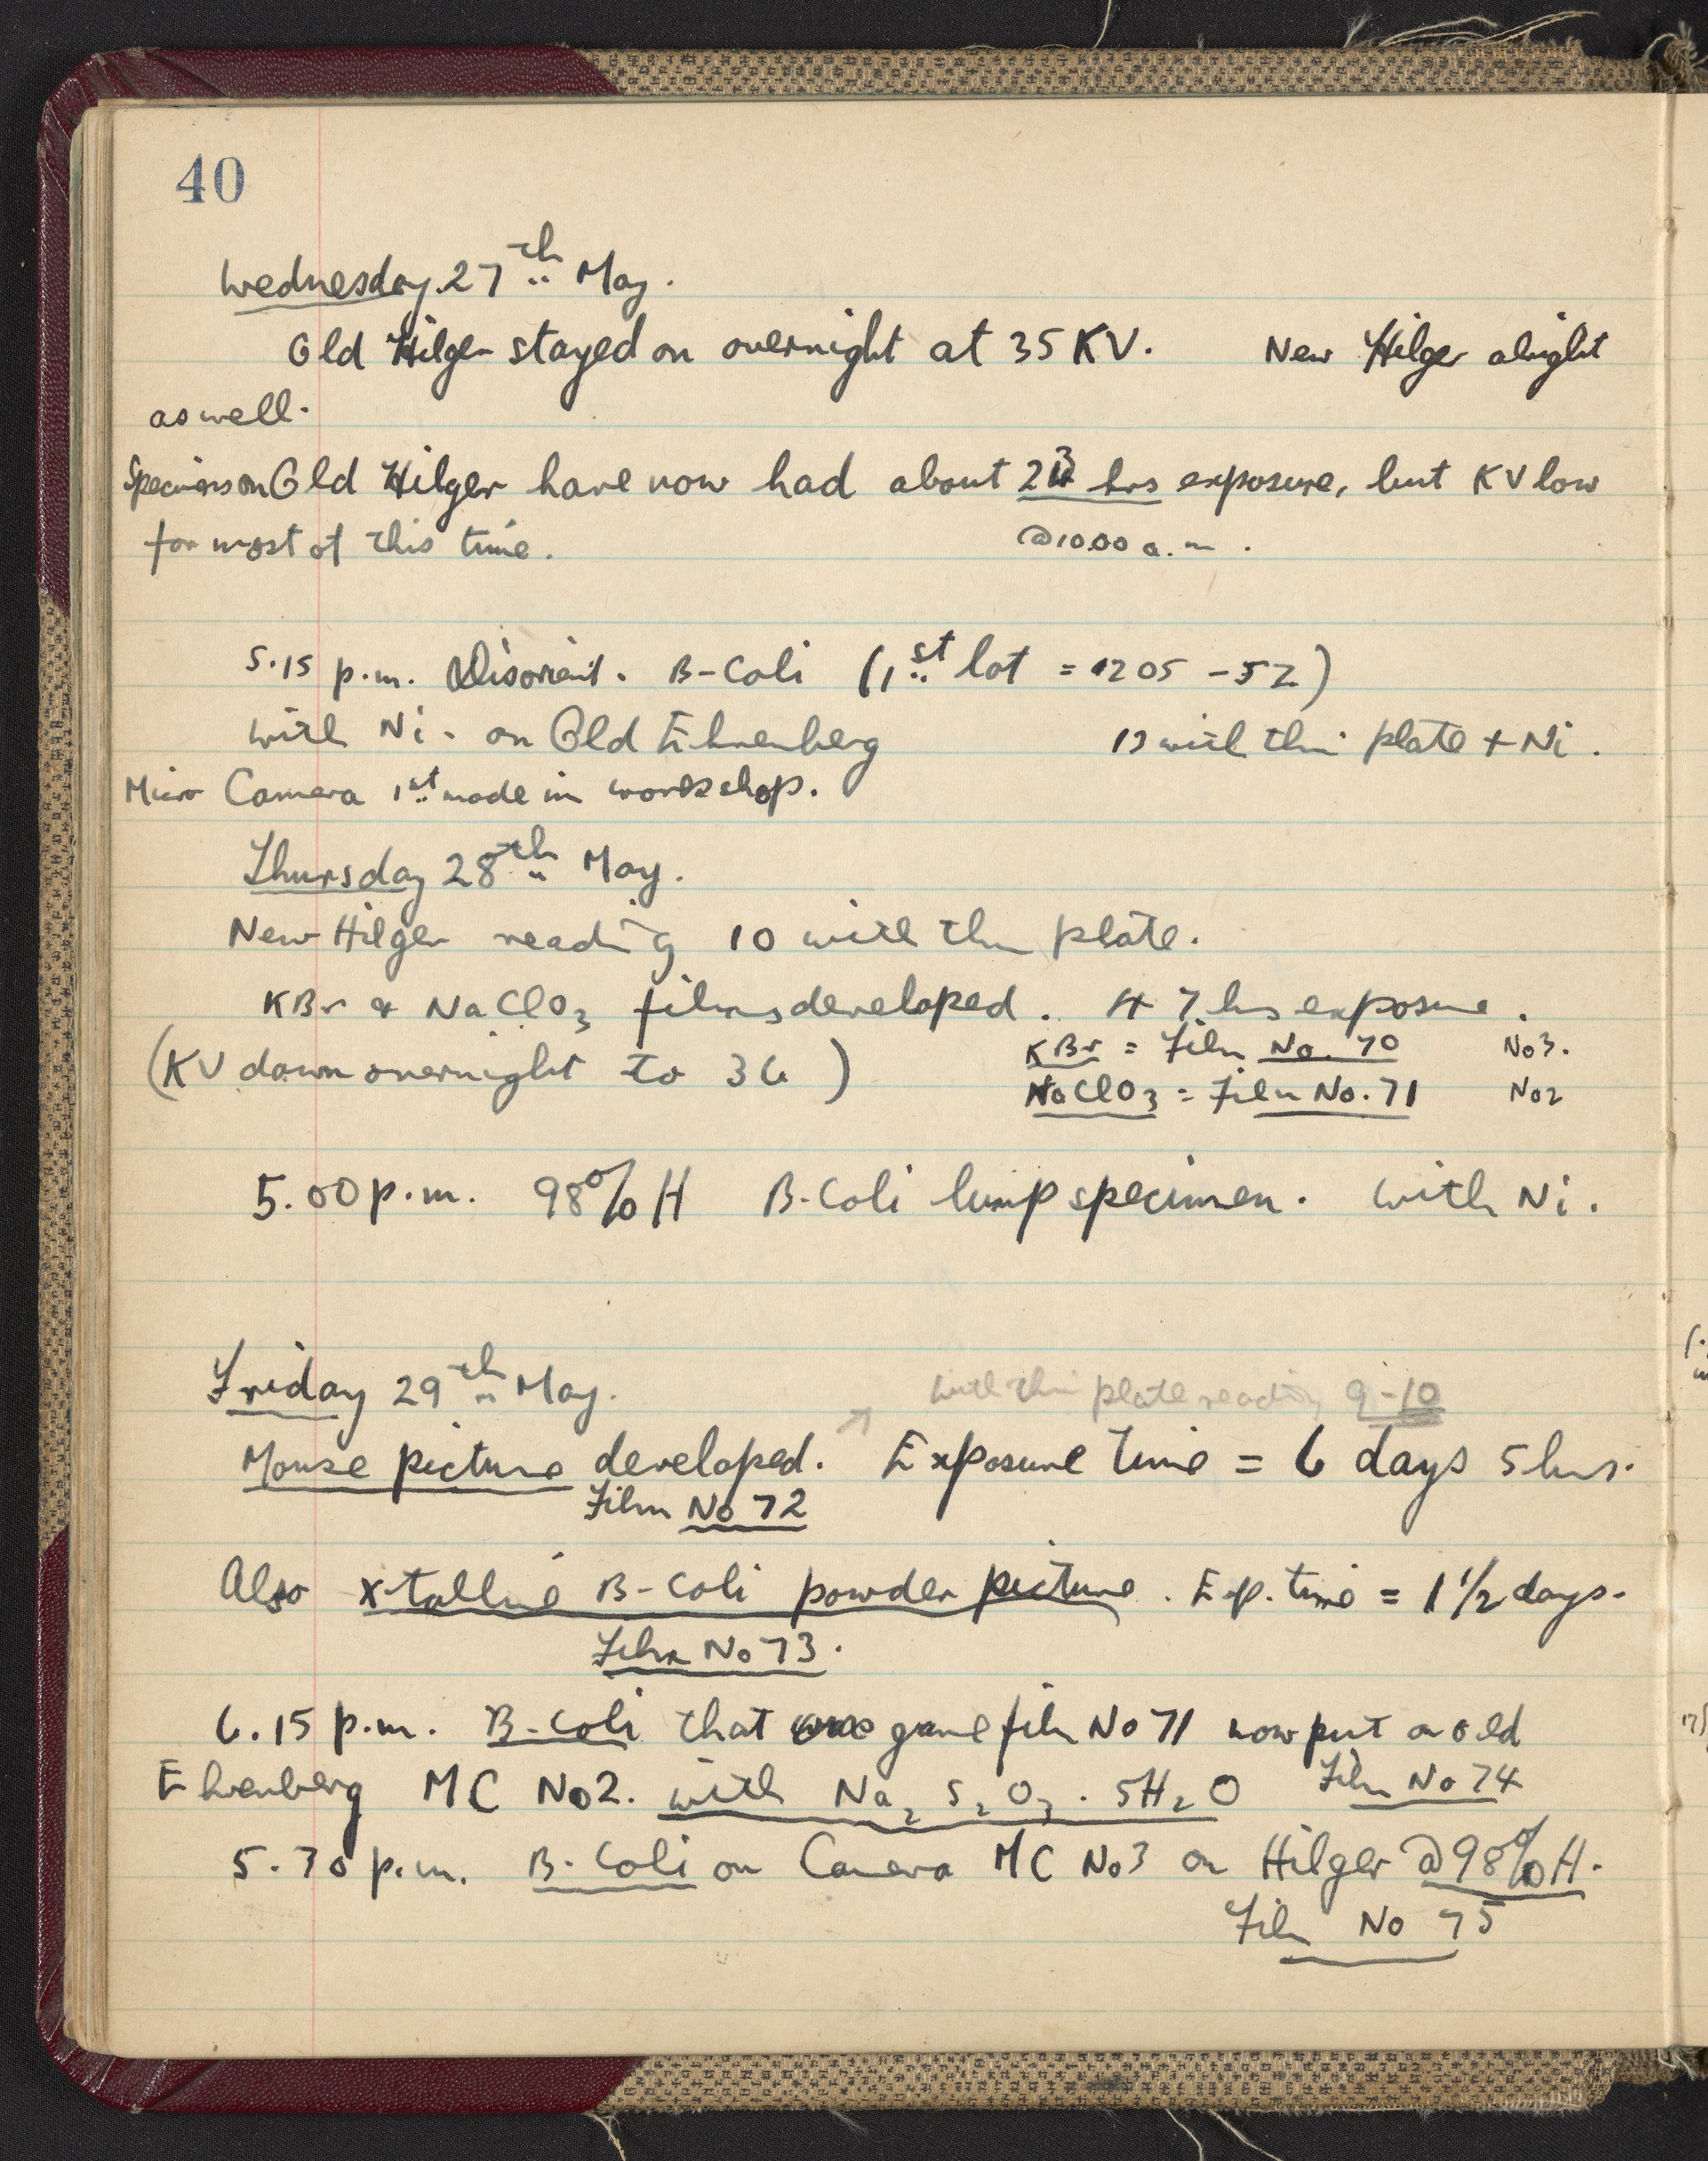 40
Wednesday. 27th May.
Old Hilger stayed on overnight at 35 KV. New Hilger alright
as well.
Specimens on Old Hilger have now had about 23 hrs exposure, but KV low
for most of this time. @ 10.00 a.m.
5.15 p.m. Disorient. B-Coli (1st lot = 1205 - 52)
with Ni - on Old Ehrenberg 12 with thin plate + Ni.
Micro Camera 1st made in workshop.
Thursday 28th May.
New Hilger reading 10 with thin plate.
KBr & NaClO3 films developed. 47 hrs exposure.
(KV down overnight to 36)
KBr = Film No. 70 No3.
NaClO3 = Film No. 71 No2
5.00 p.m. 98% H B-Coli lump specimen. with Ni.
Friday 29th May.
with thin plate reading 9-10
Mouse picture developed. Exposure time = 6 days 5 hrs.
Film No 72
Also x-talline B-Coli powder picture. Exp. time = 1 1/2 days.
Film No 73.
6.15 p.m. B-Coli that gave film No 71 now put on old
Ehrenberg MC No2. with Na2 S2 O3 . 5H2O Film No 74
5.30 p.m. B-Coli on Camera MC No3 on Hilger @ 98% H.
Film No 75